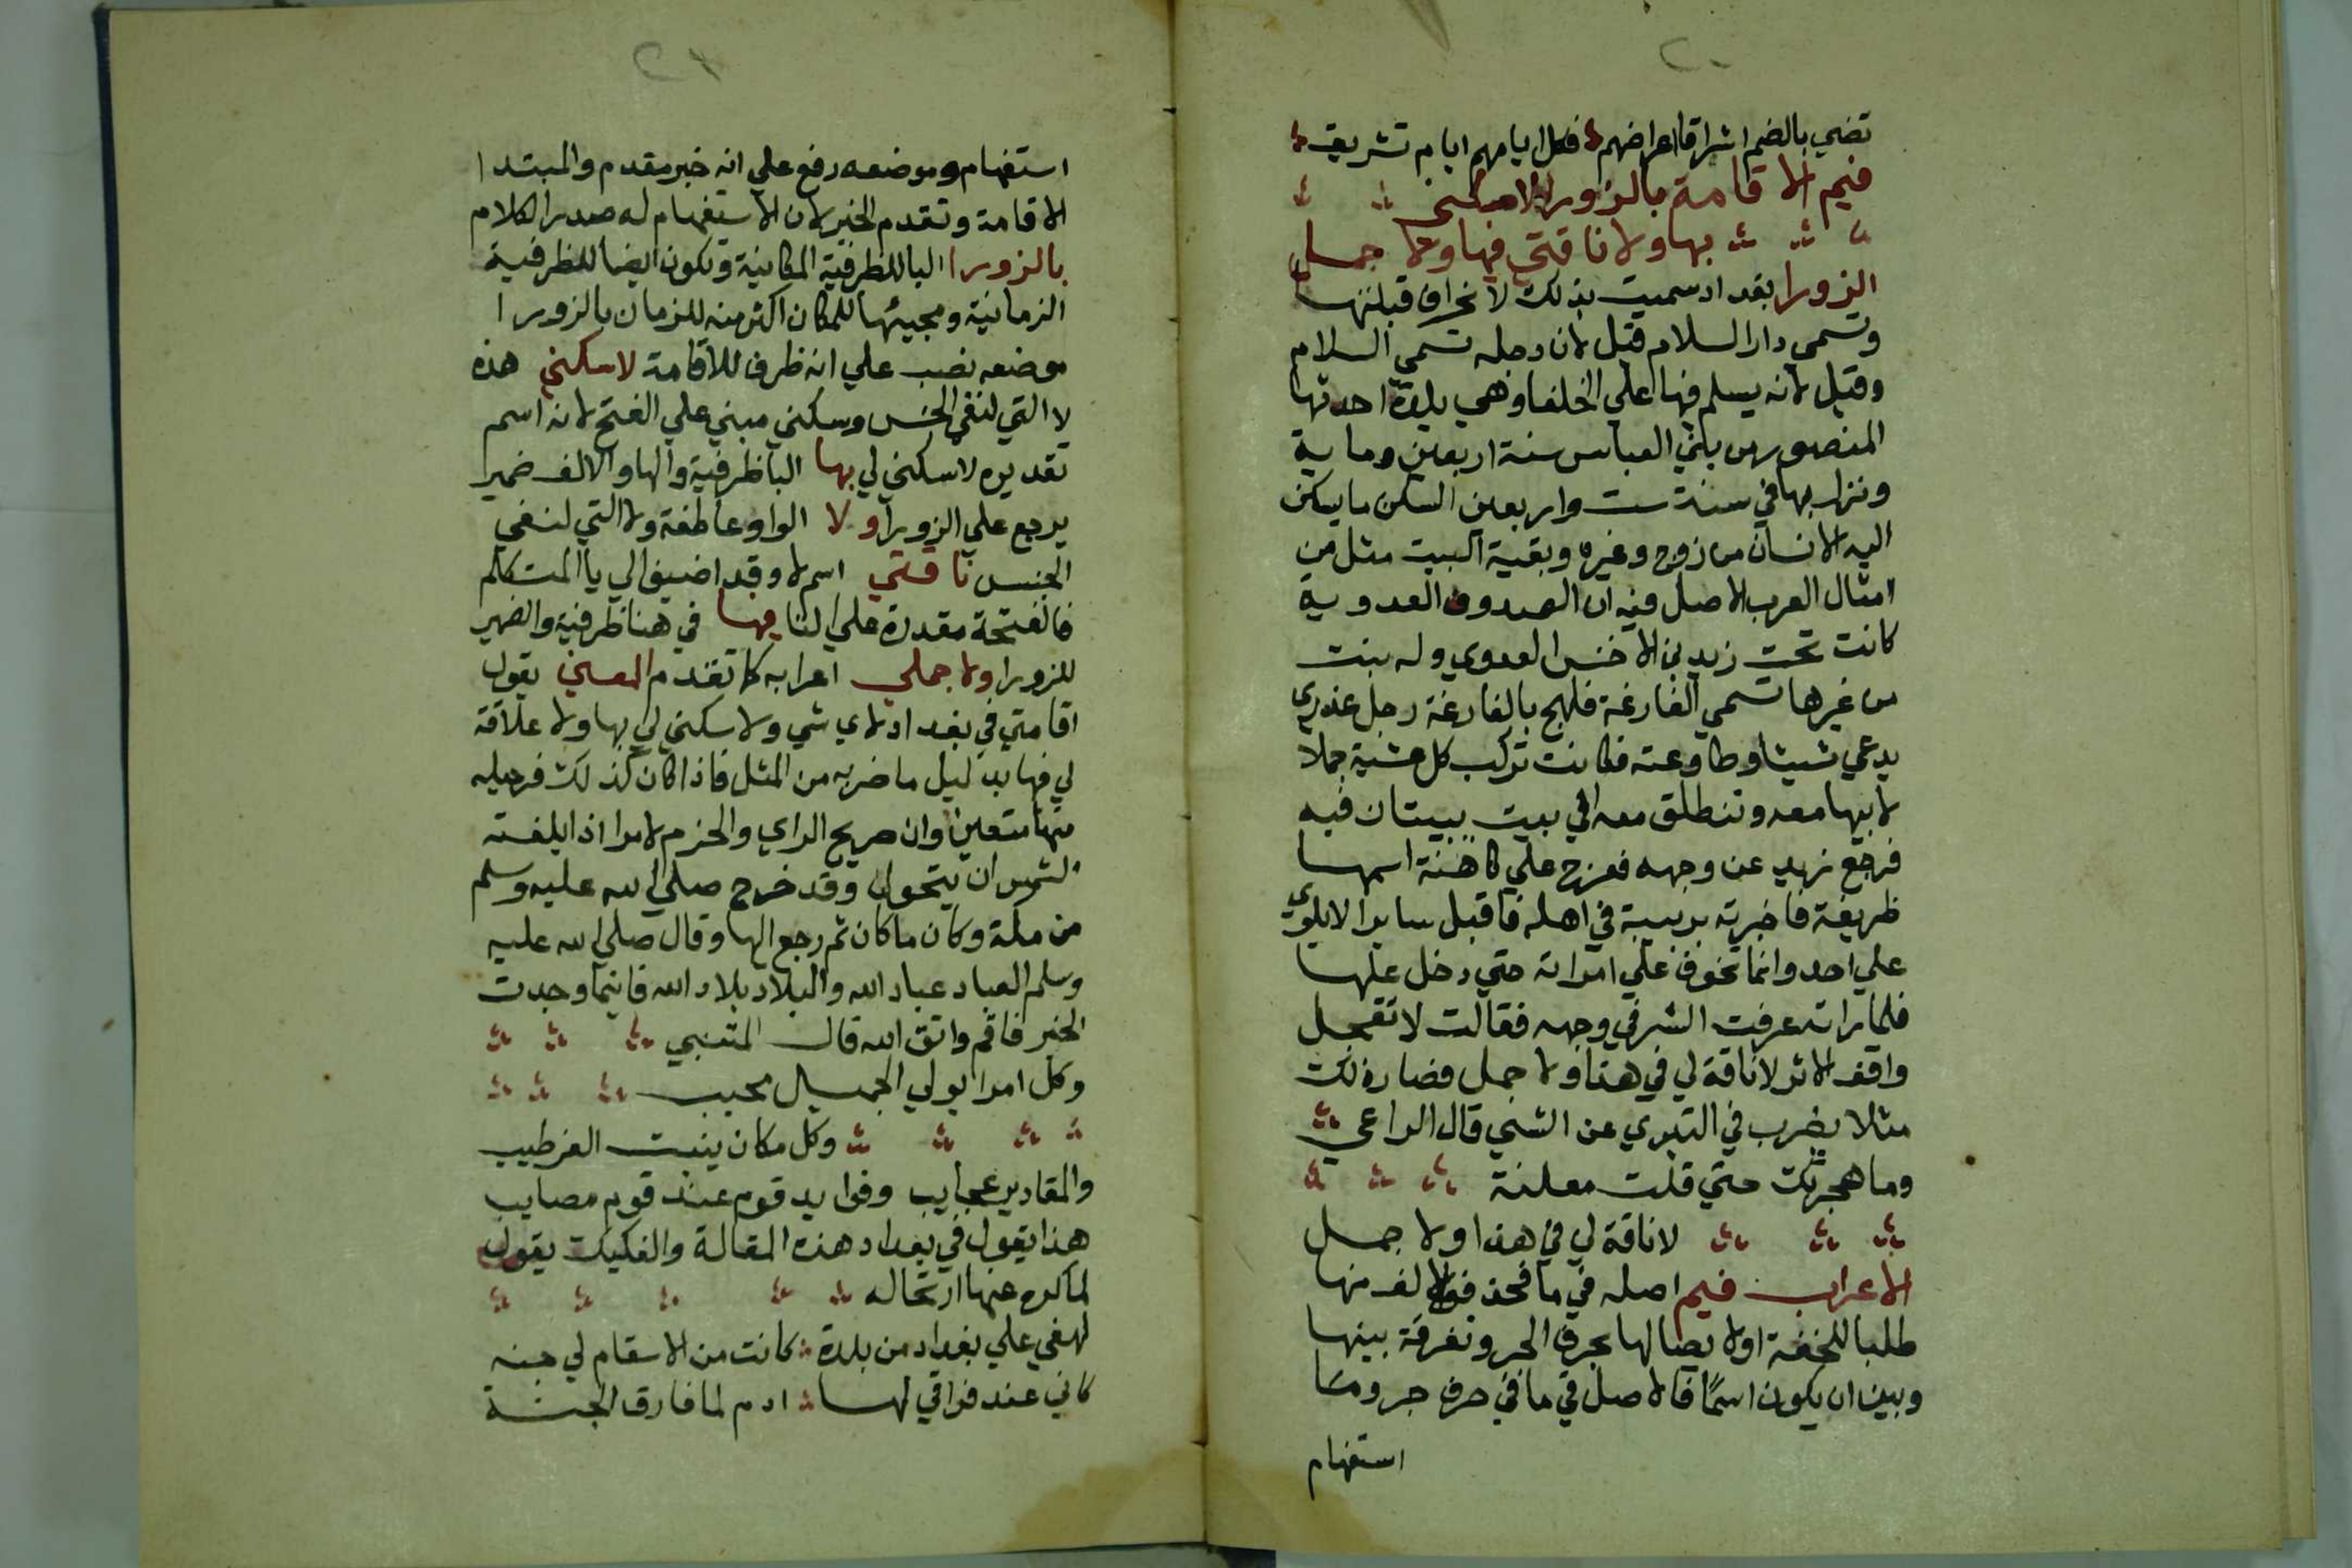 ٢٠
تضي بالضم اشراقا اعراضهم فكل ايامهم ايام تشريق
فيم الاقامة بالزورا لا سكني
بها ولا ناقتي فيها ولا جملي
الزورا بغداد سميت بذلك لانحراف قبلتها
وتسمي دار السلام قيل لان دجله تسمي السلام
وقيل لانه يسلم فيها علي الخلفا وهي بلدة احدثها
المنصور من بني العباس سنة اربعين وماية
ونزل بها في سنة ست واربعين السكن ما يسكن
اليه الانسان من زوج وغيره وبقية البيت مثل من
امثال العرب الاصل فيه ان الصدوف العدوية
كانت تحت زيد بن الاخنس العدوي وله بنت
من غيرها تسمي الفارغة فلهج بالفارغة رجل عذري
يدعي شيثا وطاوعته فكانت تركب كل عشية جملا
لابيها معه وتنطلق معه الي بيت يبيتان فيه
فرجع زيد عن وجهه فعرج علي كاهنة اسمها
ظريفة فاخبرته بريبة في اهله فاقبل سايرا لا يلوي
علي احد وانما تخوف علي امراته حتي دخل عليها
فلما راته عرفت الشر في وجهه فقالت لا تعجل
واقف الاثر لا ناقة لي في هذا ولا جمل فصار ذلك
مثلا يضرب في التبري عن الشي قال الراعي
وما هجرتك حتي قلت معلنة
لا ناقة لي في هذا ولا جمل
الاعراب فيم اصله في ما فحذفوا الالف منها
طلبا للخفة اولا يصالها بحرف الجر وتفرقة بينها
وبين ان يكون اسمًا فالاصل في ما في حرف جر وما
استفهام
٢١
استفهام وموضعه رفع علي انه خبر مقدم والمبتدا
الاقامة وتقدم الخبر لان الاستفهام له صدر الكلام
بالزورا البا للظرفية المكانية وتكون ايضا للظرفية
الزمانية ومجيئها للمكان اكثر منه للزمان بالزورا
موضعه نصب علي انه ظرف للاقامة لا سكني هذه
لا التي لنفي الجنس وسكني مبني علي الفتح لانه اسم
تقديره لا سكني لي بها البا ظرفية والها والالف ضمير
يرجع علي الزورا ولا الواو عاطفة ولا التي لنفي
الجنس ناقتي اسم لا وقد اضيف الي يا المتكلم
فالفتحة مقدرة علي التا فيها في هنا ظرفية والضمير
للزورا ولا جملي اعرابه كما تقدم المعني يقول
اقامتي في بغداد لاي شي ولا سكني لي بها ولا علاقة
لي فيها بدليل ما ضربه من المثل فاذا كان كذلك فرحيله
منها متعين وان صريح الراي والحزم لامرا اذا بلغته
الشمس ان يتحول وقد خرج صلي الله عليه وسلم
من مكة وكان ما كان ثم رجع اليها وقال صلي الله عليه
وسلم العباد عباد الله والبلاد بلاد الله فاينما وجدت
الخير فاقم واتق الله قال المتنبي
وكل امرا يولي الجميل محبب
وكل مكان ينبت العز طيب
والمقادير عجايب وفوايد قوم عند قوم مصايب
هذا يقول في بغداد هذه المقالة والفكيك يقول
لما كره عنها ارتحاله
لهفي علي بغداد من بلدة كانت من الاسقام لي جنه
كاني عند فراقي لها ادم لما فارق الجنة